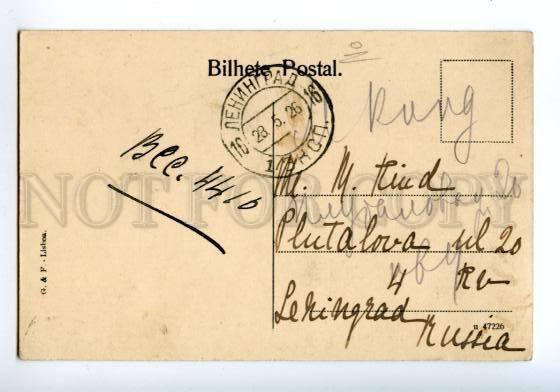 Bilhete Postal.
ЛЕНИНГРАД
16 16
28.5.26
Bec. 4416
Mr. M. Kind
Plutalowa ul 20
4 Kv
Leningrad
Russia
G. & F. - Lisboa.
u 47226
NOT FOR COPY